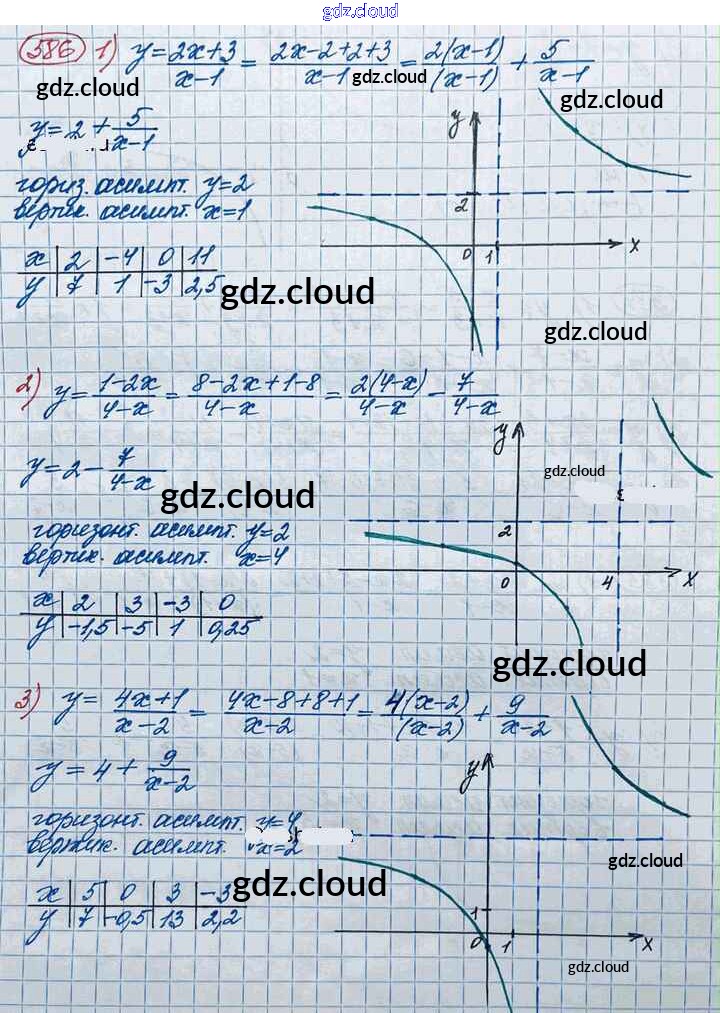 gdz.cloud
586 1) y = (2x+3)/(x-1) = (2x-2+2+3)/(x-1) = 2(x-1)/(x-1) + 5/(x-1)
gdz.cloud gdz.cloud gdz.cloud
y = 2 + 5/(x-1)
гориз. асимпт. y=2
вертик. асимпт. x=1
x | 2 | -4 | 0 | 11
y | 7 | 1 | -3 | 2,5
gdz.cloud
y
2
0 1 x
gdz.cloud
2) y = (1-2x)/(4-x) = (8-2x+1-8)/(4-x) = 2(4-x)/(4-x) - 7/(4-x)
y = 2 - 7/(4-x)
gdz.cloud
горизонт. асимпт. y=2
вертик. асимпт. x=4
x | 2 | 3 | -3 | 0
y | -1,5 | -5 | 1 | 0,25
y
gdz.cloud
2
0 4 x
gdz.cloud
3) y = (4x+1)/(x-2) = (4x-8+8+1)/(x-2) = 4(x-2)/(x-2) + 9/(x-2)
y = 4 + 9/(x-2)
горизонт. асимпт. y=4
вертик. асимпт. x=2
x | 5 | 0 | 3 | -3
y | 7 | -0,5 | 13 | 2,2
gdz.cloud
y
gdz.cloud
1
0 1 x
gdz.cloud